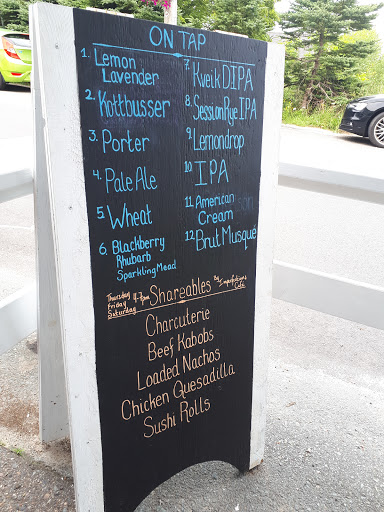 ON TAP
1. Lemon
Lavender
2. Kottbusser
3. Porter
4. Pale Ale
5. Wheat
6. Blackberry
Rhubarb
Sparkling Mead
7. Kveik DIPA
8. Session Rye IPA
9. Lemondrop
10. IPA
11. American
Cream
12. Brut Musqué
Thursday
Friday
Saturday
Shareables
By
Cafe
Charcuterie
Beef Kabobs
Loaded Nachos
Chicken Quesadilla
Sushi Rolls